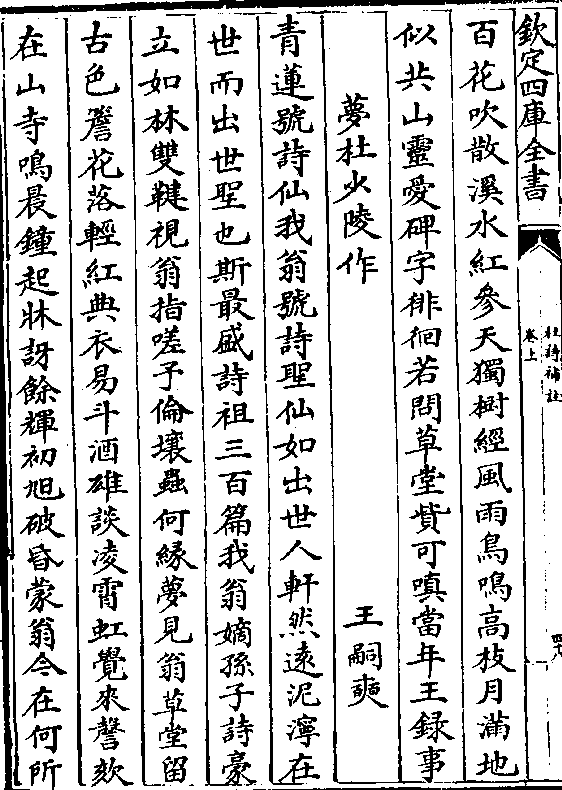 欽定四庫全書
杜詩補註
卷上
四八
百花吹散溪水紅參天獨樹經風雨鳥鳴高枝月滿地
似共山靈愛碑字徘徊若問草堂貲可嗔當年王録事
夢杜少陵作
王嗣奭
青蓮號詩仙我翁號詩聖仙如出世人軒然遠泥濘在
世而出世聖也斯最盛詩祖三百篇我翁嫡孫子詩豪
立如林雙鞬視翁指嗟予倫壤蟲何縁夢見翁草堂留
古色簷花落輕紅典衣易斗酒雄談凌霄虹覺來謦欬
在山寺鳴晨鐘起牀訝餘輝初旭破昏蒙翁今在何所